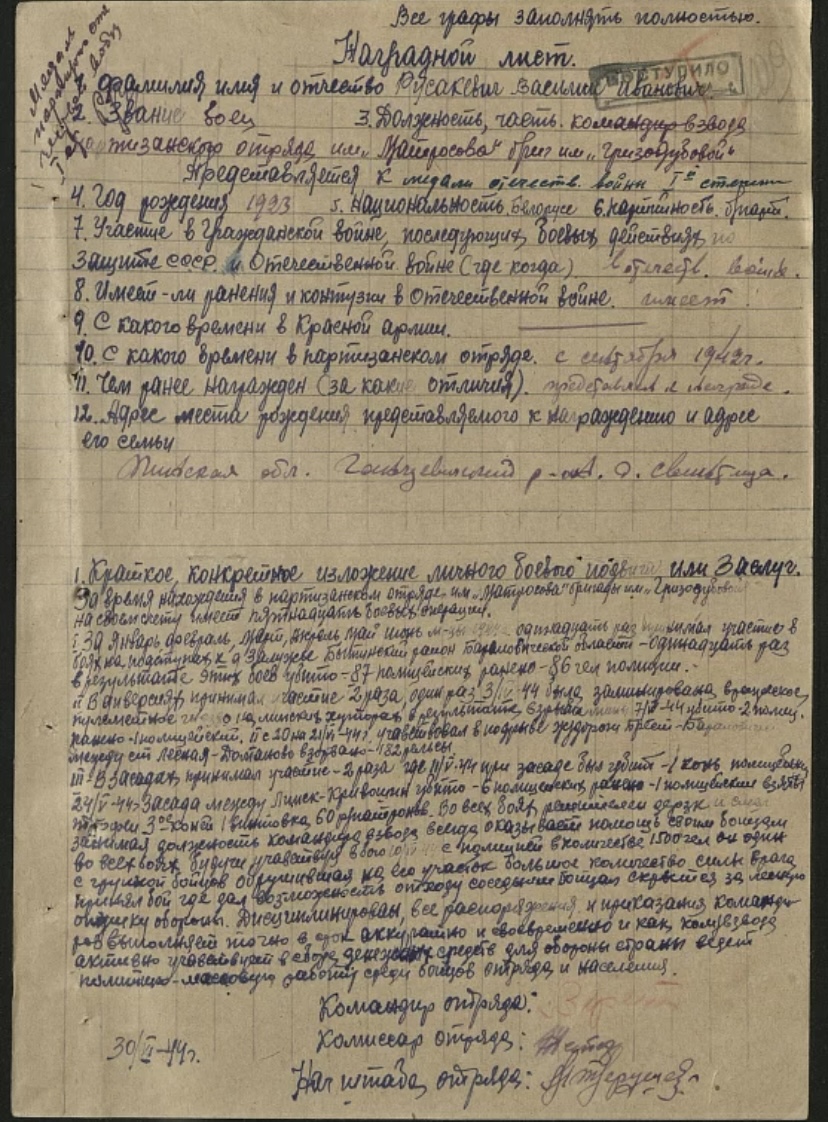 Все графы заполнять полностью.
Наградной лист.
ПОСТУПИЛО
1. Фамилия имя и отчество Русакевич Василий Иванович.
2. Звание боец 3. Должность, часть. командир взвода
партизанского отряда им. „Матросова" бриг им „Гризодубовой"
Представляется к медали отечеств. войны I-й степени
4. Год рождения 1923 5. Национальность. Белорусс 6. партийность. б/парт.
7. Участие в Гражданской войне, последующих боевых действиях по
защите СССР и Отечественной войне (где когда) в отечеств. войне.
8. Имеет-ли ранения и контузии в Отечественной войне. имеет
9. С какого времени в Красной армии.
10. С какого времени в партизанском отряде. с сентября 1942 г.
11. Чем ранее награжден (за какие отличия). представлен к награде.
12. Адрес места рождения представляемого к награждению и адрес
его семьи
Пинская обл. Ганцевичский р-он. д. Свентица.
1. Краткое, конкретное изложение личного боевого подвига или заслуг.
За время нахождения в партизанском отряде им „Матросова" бригады им „Гризодубовой
на своем счету имеет пятнадцать боевых операций.
I За Январь, февраль, март, апрель май июнь м-цы 1944 одиннадцать раз принимал участие в
боях на подступах к д Залужье Бытенский район Барановической области - одиннадцать раз
в результате этих боев убито - 87 полицейских ранено - 86 чел полиции.
II В диверсиях принимал участие 2 раза, один раз 3/IV-44 была заминирована вражеское
пулеметное гнездо на линских хуторах в результате взрыва 7/IV-44 убито - 2 полиц.
ранено - 1 полицейский. II с 20 на 21/VI-44 г. участвовал в подрыве жудороги Брест-Барановичи
между ст Лесная - Доманово взорвано - 182 рельсы.
III В засадах принимал участие - 2 раза где при засаде был убит - 1 конь полицейский
24/V-44 г Засада между Линск-Кривошин убито - 6 полицейских ранено - 1 полицейский взяты
трофеи 1 винтовка 60 р/патронов. Во всех боях решителен дерзк и смел
занимая должность командира взвода всегда оказывает помощь своим бойцам
во всех боях, будучи участвуя в бою с полицией в количестве 1500 чел он один
с группой бойцов обрушившая на его участок большое количество силы врага
принял бой где дал возможность отходу соседним бойцам скрыться за
опушку обороны. Дисциплинирован, все распоряжения и приказания команди-
ров выполняет точно в срок аккуратно и своевременно и как ком/взвода
активно участвует в сборе денежных средств для обороны страны ведет
политико-массовую работу среди бойцов отряда и населения.
Командир отряда:
Комиссар отряда:
30/VI-44 г.
Нач штаба отряда: